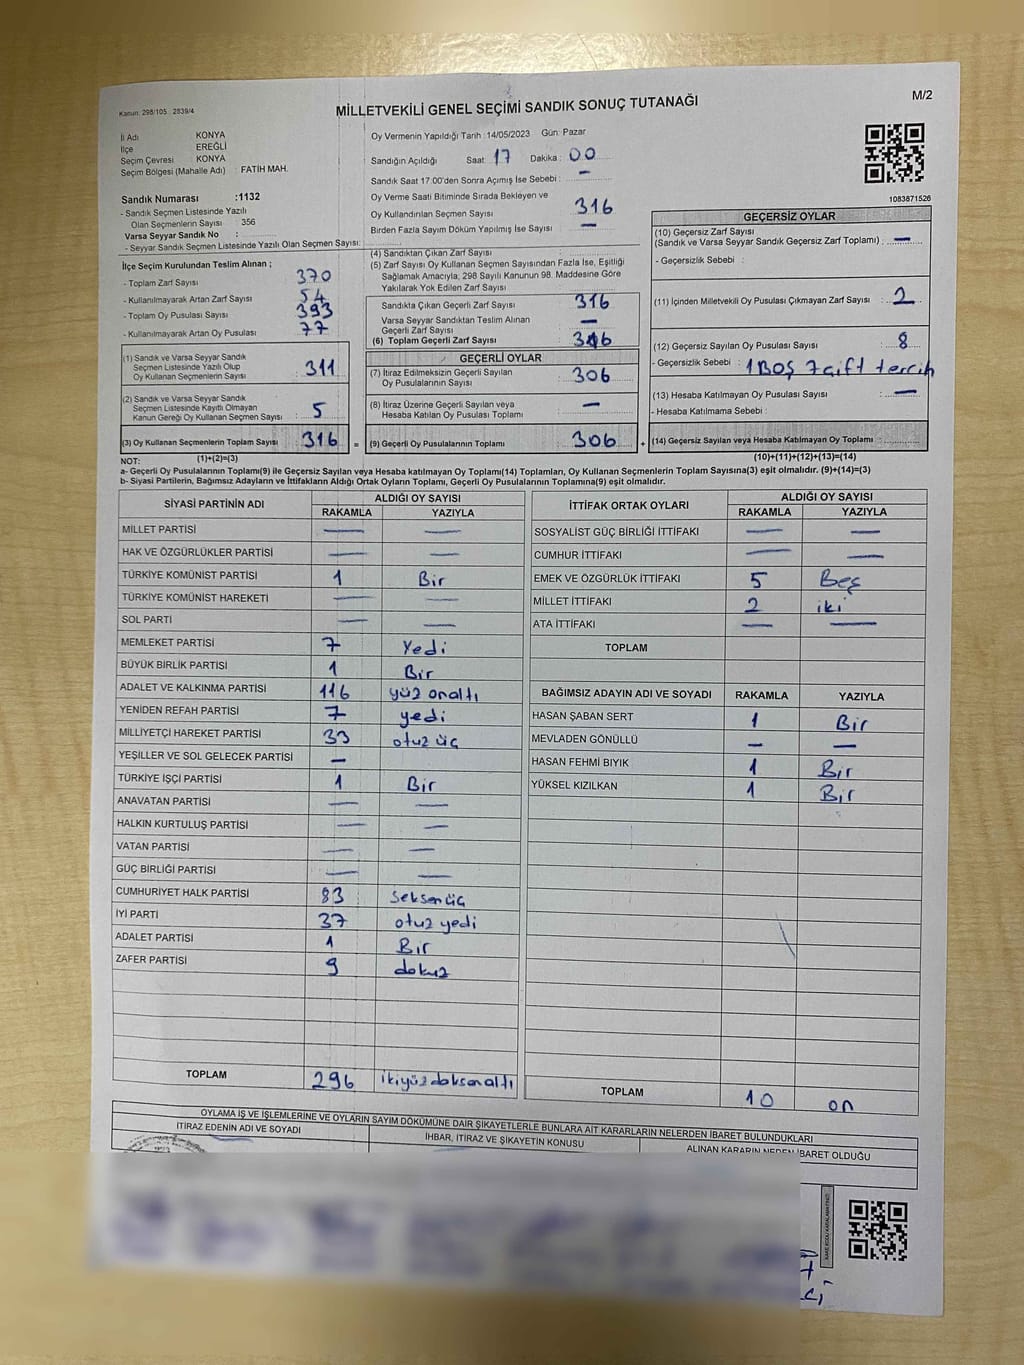 Kanun: 298/105 2839/4
MİLLETVEKİLİ GENEL SEÇİMİ SANDIK SONUÇ TUTANAĞI
M/2
İl Adı KONYA
İlçe EREĞLİ
Seçim Çevresi KONYA
Seçim Bölgesi (Mahalle Adı) : FATİH MAH.
Sandık Numarası :1132
- Sandık Seçmen Listesinde Yazılı
Olan Seçmenlerin Sayısı : 356
Varsa Seyyar Sandık No :
- Seyyar Sandık Seçmen Listesinde Yazılı Olan Seçmen Sayısı:
Oy Vermenin Yapıldığı Tarih :14/05/2023 Gün: Pazar
Sandığın Açıldığı Saat: 17 Dakika: 00
Sandık Saat 17:00'den Sonra Açımış İse Sebebi : —
Oy Verme Saati Bitiminde Sırada Bekleyen ve
Oy Kullandırılan Seçmen Sayısı 316
Birden Fazla Sayım Döküm Yapılmış İse Sayısı —
1083871526
İlçe Seçim Kurulundan Teslim Alınan ;
- Toplam Zarf Sayısı : 370
- Kullanılmayarak Artan Zarf Sayısı : 54
- Toplam Oy Pusulası Sayısı : 393
- Kullanılmayarak Artan Oy Pusulası : 77
(1) Sandık ve Varsa Seyyar Sandık
Seçmen Listesinde Yazılı Olup
Oy Kullanan Seçmenlerin Sayısı : 311
(2) Sandık ve Varsa Seyyar Sandık
Seçmen Listesinde Kayıtlı Olmayan
Kanun Gereği Oy Kullanan Seçmen Sayısı : 5
(3) Oy Kullanan Seçmenlerin Toplam Sayısı : 316 =
(4) Sandıktan Çıkan Zarf Sayısı :
(5) Zarf Sayısı Oy Kullanan Seçmen Sayısından Fazla İse, Eşitliği
Sağlamak Amacıyla; 298 Sayılı Kanunun 98. Maddesine Göre
Yakılarak Yok Edilen Zarf Sayısı :
Sandıkta Çıkan Geçerli Zarf Sayısı 316
Varsa Seyyar Sandıktan Teslim Alınan
Geçerli Zarf Sayısı —
(6) Toplam Geçerli Zarf Sayısı 316
GEÇERLİ OYLAR
(7) İtiraz Edilmeksizin Geçerli Sayılan
Oy Pusulalarının Sayısı 306
(8) İtiraz Üzerine Geçerli Sayılan veya
Hesaba Katılan Oy Pusulası Toplamı —
(9) Geçerli Oy Pusulalarının Toplamı 306 +
GEÇERSİZ OYLAR
(10) Geçersiz Zarf Sayısı
(Sandık ve Varsa Seyyar Sandık Geçersiz Zarf Toplamı) : —
- Geçersizlik Sebebi :
(11) İçinden Milletvekili Oy Pusulası Çıkmayan Zarf Sayısı : 2
(12) Geçersiz Sayılan Oy Pusulası Sayısı : 8
- Geçersizlik Sebebi : 1 Boş 7 çift tercih
(13) Hesaba Katılmayan Oy Pusulası Sayısı : —
- Hesaba Katılmama Sebebi :
(14) Geçersiz Sayılan veya Hesaba Katılmayan Oy Toplamı :
NOT: (1)+(2)=(3) (10)+(11)+(12)+(13)=(14)
a- Geçerli Oy Pusulalarının Toplamı(9) ile Geçersiz Sayılan veya Hesaba katılmayan Oy Toplamı(14) Toplamları, Oy Kullanan Seçmenlerin Toplam Sayısına(3) eşit olmalıdır. (9)+(14)=(3)
b- Siyasi Partilerin, Bağımsız Adayların ve İttifakların Aldığı Ortak Oyların Toplamı, Geçerli Oy Pusulalarının Toplamına(9) eşit olmalıdır.
SİYASİ PARTİNİN ADI ALDIĞI OY SAYISI
RAKAMLA YAZIYLA
MİLLET PARTİSİ — —
HAK VE ÖZGÜRLÜKLER PARTİSİ — —
TÜRKİYE KOMÜNİST PARTİSİ 1 Bir
TÜRKİYE KOMÜNİST HAREKETİ — —
SOL PARTİ — —
MEMLEKET PARTİSİ 7 Yedi
BÜYÜK BİRLİK PARTİSİ 1 Bir
ADALET VE KALKINMA PARTİSİ 116 yüz onaltı
YENİDEN REFAH PARTİSİ 7 yedi
MİLLİYETÇİ HAREKET PARTİSİ 33 otuz üç
YEŞİLLER VE SOL GELECEK PARTİSİ —
TÜRKİYE İŞÇİ PARTİSİ 1 Bir
ANAVATAN PARTİSİ — —
HALKIN KURTULUŞ PARTİSİ — —
VATAN PARTİSİ — —
GÜÇ BİRLİĞİ PARTİSİ — —
CUMHURİYET HALK PARTİSİ 83 Seksen üç
İYİ PARTİ 37 otuz yedi
ADALET PARTİSİ 1 Bir
ZAFER PARTİSİ 9 dokuz
TOPLAM 296 ikiyüz doksan altı
İTTİFAK ORTAK OYLARI ALDIĞI OY SAYISI
RAKAMLA YAZIYLA
SOSYALİST GÜÇ BİRLİĞİ İTTİFAKI — —
CUMHUR İTTİFAKI — —
EMEK VE ÖZGÜRLÜK İTTİFAKI 5 Beş
MİLLET İTTİFAKI 2 iki
ATA İTTİFAKI — —
TOPLAM
BAĞIMSIZ ADAYIN ADI VE SOYADI RAKAMLA YAZIYLA
HASAN ŞABAN SERT 1 Bir
MEVLADEN GÖNÜLLÜ — —
HASAN FEHMİ BIYIK 1 Bir
YÜKSEL KIZILKAN 1 Bir
TOPLAM 10 on
OYLAMA İŞ VE İŞLEMLERİNE VE OYLARIN SAYIM DÖKÜMÜNE DAİR ŞİKAYETLERLE BUNLARA AİT KARARLARIN NELERDEN İBARET BULUNDUKLARI
İTİRAZ EDENİN ADI VE SOYADI İHBAR, İTİRAZ VE ŞİKAYETİN KONUSU ALINAN KARARIN NEDEN İBARET OLDUĞU